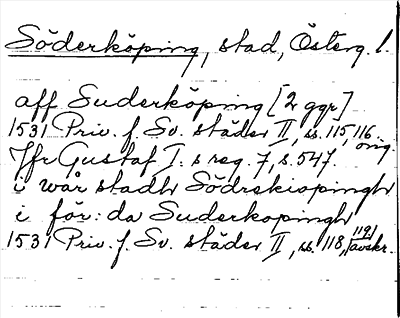 Söderköping, stad, Österg. l.
aff Suderköping [2 ggr]
1531 Priv. f. Sv. städer II, ss. 115, 116 orig.
Jfr Gustaf I.s reg. 7, s. 547.
i wår stadh Södrskiopingh
i för: da Suderkopingh
1531 Priv. f. Sv. städer II, ss. 118, 119 avskr.